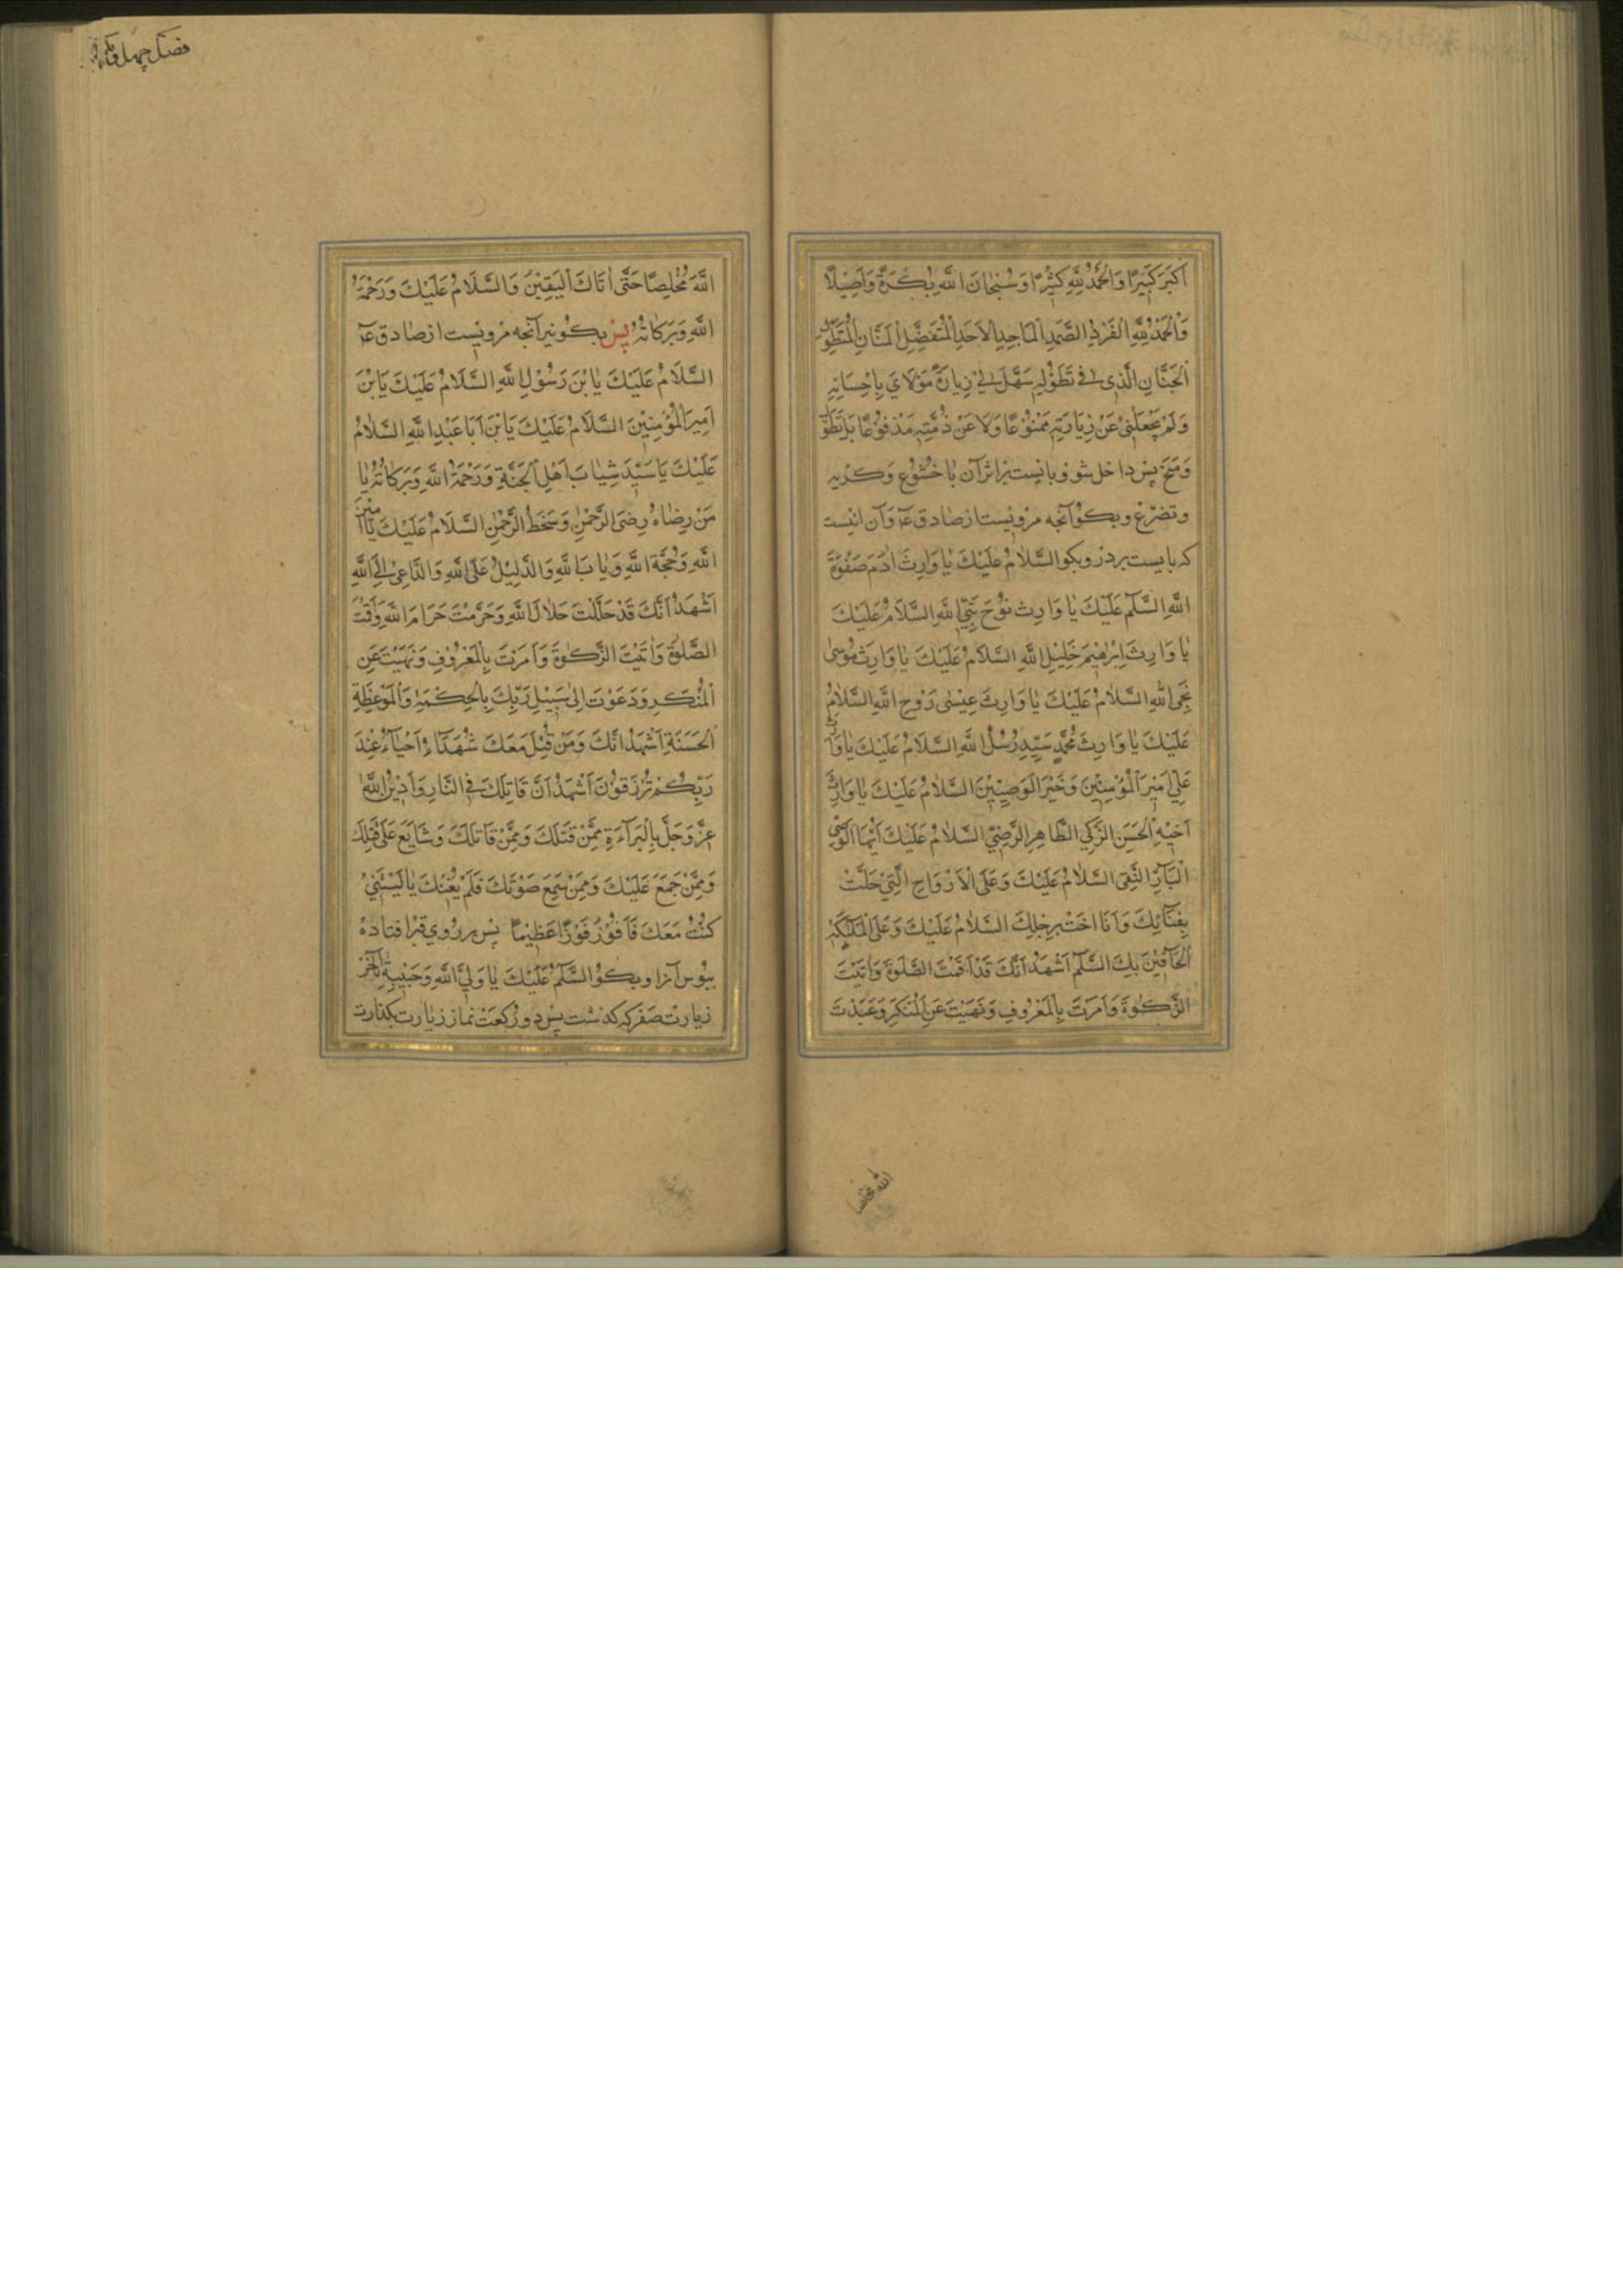 اَكْبَرُ كَبِيرًا وَالْحَمْدُ لِلّٰهِ كَثِيْرًا وَسُبْحَانَ اللّٰهِ بُكْرَةً وَاَصِيْلًا
وَالْحَمْدُ لِلّٰهِ الْفَرْدِ الصَّمَدِ الْمَاجِدِ الْاَحَدِ الْمُتَفَضِّلِ الْمَنَّانِ الْمُتَطَوِّلِ
الْحَنَّانِ الَّذِي تَطَوُّلِهِ سَهَّلَ لِيْ زِيَارَةَ مَوْلَايَ بِاِحْسَانِهِ
وَلَمْ يَجْعَلْنِيْ عَنْ زِيَارَتِهِ مَمْنُوْعًا وَلَا عَنْ ذِمَّتِهِ مَدْفُوْعًا بَلْ تَطَوَّ
وَمَنَحَ پس داخل شو و بايست برابر آن با خشوع و گريه
و تضرّع و بگو آنچه مرويست از صادق ع و آن اينست
كه بايست بر در و بگو السَّلَامُ عَلَيْكَ يَا وَارِثَ اٰدَمَ صَفْوَةَ
اللّٰهِ السَّلٰمُ عَلَيْكَ يَا وَارِثَ نُوْحَ نَبِيِّ اللّٰهِ السَّلَامُ عَلَيْكَ
يَا وَارِثَ اِبْرٰهِيْمَ خَلِيْلِ اللّٰهِ السَّلَامُ عَلَيْكَ يَا وَارِثَ مُوْسٰى
نَجِيِّ اللّٰهِ السَّلَامُ عَلَيْكَ يَا وَارِثَ عِيْسٰى رَوْحِ اللّٰهِ السَّلَامُ
عَلَيْكَ يَا وَارِثَ مُحَمَّدٍ سَيِّدِ رُسُلِ اللّٰهِ السَّلَامُ عَلَيْكَ يَا وَارِثَ
عَلِيٍّ اَمِيْرِ الْمُؤْمِنِيْنَ وَخَيْرِ الْوَصِيِّيْنَ السَّلَامُ عَلَيْكَ يَا وَارِثَ
اَخِيْهِ الْحَسَنِ الزَّكِيِّ الطَّاهِرِ الرَّضِيِّ السَّلَامُ عَلَيْكَ اَيُّهَا الْوَصِيُّ
الْبَآرُّ التَّقِيُّ السَّلَامُ عَلَيْكَ وَعَلَى الْاَرْوَاحِ الَّتِيْ حَلَّتْ
بِفِنَآئِكَ وَاَنَاخَتْ بِرَحْلِكَ السَّلَامُ عَلَيْكَ وَعَلَى الْمَلٰٓئِكَةِ
الْحَآفِّيْنَ بِكَ السَّلٰمُ اَشْهَدُ اَنَّكَ قَدْ اَقَمْتَ الصَّلٰوةَ وَاٰتَيْتَ
الزَّكٰوةَ وَاَمَرْتَ بِالْمَعْرُوْفِ وَنَهَيْتَ عَنِ الْمُنْكَرِ وَعَبَدْتَ
اللّٰه مخلصا
اللّٰهَ مُخْلِصًا حَتَّى اَتَاكَ الْيَقِيْنُ وَالسَّلَامُ عَلَيْكَ وَرَحْمَةُ
اللّٰهِ وَبَرَكَاتُهُ پس بگو نيز آنچه مرويست از صادق ع
السَّلَامُ عَلَيْكَ يَا بْنَ رَسُوْلِ اللّٰهِ السَّلَامُ عَلَيْكَ يَا بْنَ
اَمِيْرِ الْمُؤْمِنِيْنَ السَّلَامُ عَلَيْكَ يَا بْنَ اَبَا عَبْدِ اللّٰهِ السَّلَامُ
عَلَيْكَ يَا سَيِّدَ شِبَابِ اَهْلِ الْجَنَّةِ وَرَحْمَةُ اللّٰهِ وَبَرَكَاتُهُ يَا
مَنْ رِضَاهُ رِضَى الرَّحْمٰنِ وَسَخَطُهُ الرَّحْمٰنِ السَّلَامُ عَلَيْكَ يَا اَمِيْنَ
اللّٰهِ وَحُجَّةَ اللّٰهِ وَيَا بَابَ اللّٰهِ وَالدَّلِيْلُ عَلَى اللّٰهِ وَالدَّاعِيْ اِلَى اللّٰهِ
اَشْهَدُ اَنَّكَ قَدْ حَلَّلْتَ حَلَالَ اللّٰهِ وَحَرَّمْتَ حَرَامَ اللّٰهِ وَاَقَمْتَ
الصَّلٰوةَ وَاٰتَيْتَ الزَّكٰوةَ وَاَمَرْتَ بِالْمَعْرُوْفِ وَنَهَيْتَ عَنِ
الْمُنْكَرِ وَدَعَوْتَ اِلٰى سَبِيْلِ رَبِّكَ بِالْحِكْمَةِ وَالْمَوْعِظَةِ
الْحَسَنَةِ اَشْهَدُ اَنَّكَ وَمَنْ قُتِلَ مَعَكَ شُهَدَآءُ اَحْيَآءٌ عِنْدَ
رَبِّكُمْ تُرْزَقُوْنَ اَشْهَدُ اَنَّ قَاتِلَكَ فِي النَّارِ وَاَدِيْنُ اللّٰهَ
عَزَّ وَجَلَّ بِالْبَرَآءَةِ مِمَّنْ قَتَلَكَ وَمِمَّنْ قَاتَلَكَ وَشَايَعَ عَلٰى قَتْلِكَ
وَمِمَّنْ جَمَعَ عَلَيْكَ وَمِمَّنْ سَمِعَ صَوْتَكَ فَلَمْ يُعِنْكَ يَا لَيْتَنِيْ
كُنْتُ مَعَكَ فَاَفُوْزَ فَوْزًا عَظِيْمًا پس بر روي قبر افتاده
ببوس آنرا و بگو السَّلٰمُ عَلَيْكَ يَا وَلِيَّ اللّٰهِ وَحَبِيْبِهِ تا آخر
زيارت صفر كه گذشت پس دو ركعت نماز زيارت بگذارت